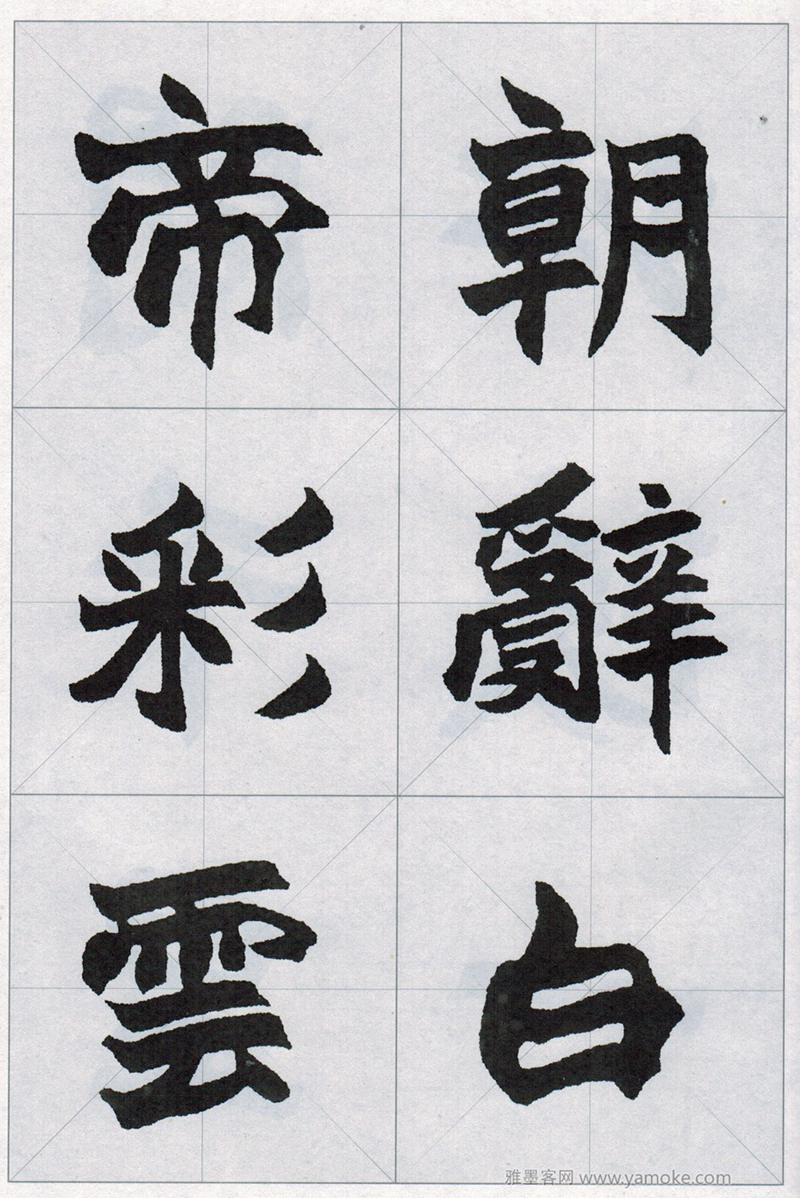 朝辭白
帝彩雲
雅墨客网 www.yamoke.com